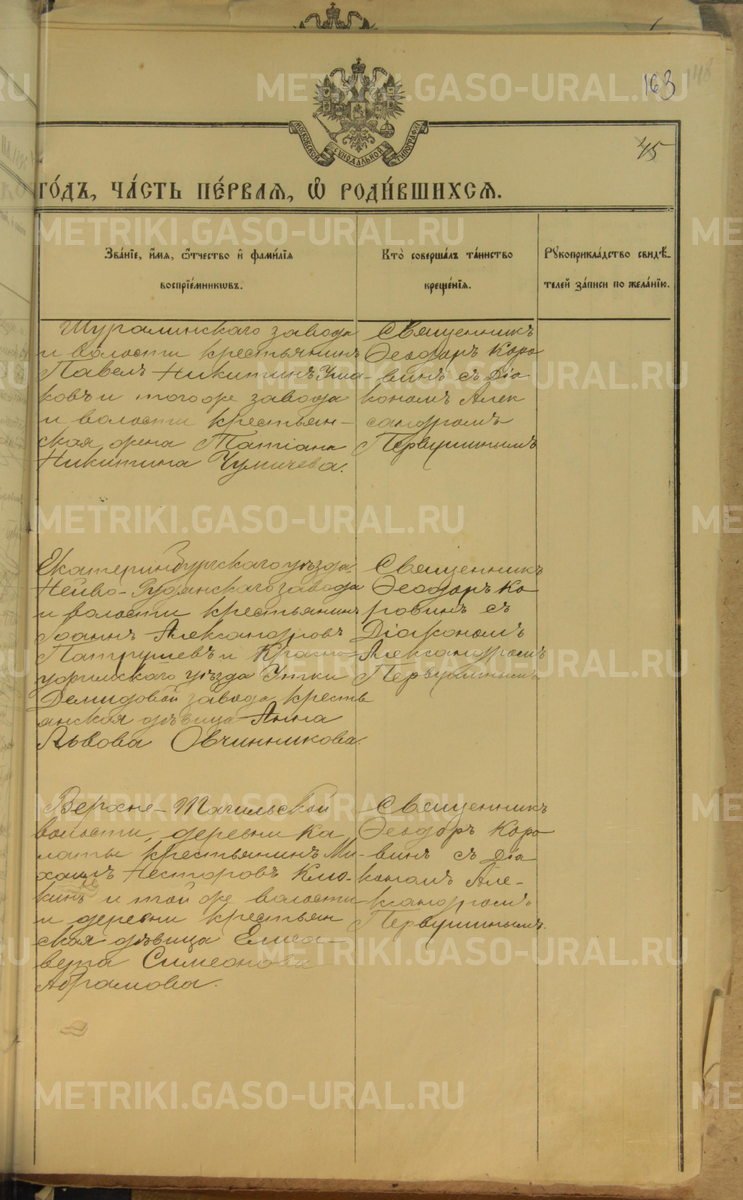 163
148
45
МОСКОВСКОЙ СѴНОДАЛЬНОЙ ТИПОГРАФІИ
ГО́ДЪ, ЧА́СТЬ ПЕ́РВАЯ, Ѡ҆ РОДИ́ВШИХСЯ.
Зва́нїе, и҆́мя, ѻ҆́тчество и҆ фами́лїя
воспрїе́мникѡвъ.
Кто̀ соверша́лъ та́инство
креще́нїя.
Рꙋкоприкла́дство свидѣ́-
телей за́писи по жела́нїю.
Шуралинскаго завода
и волости крестьянинъ
Павелъ Никитинъ Уша-
ковъ и того же завода
и волости крестьян-
ская жена Татіана
Никитина Чумичева.
Священникъ
Ѳеодоръ Коро-
винъ съ Діа-
кономъ Алек
сандромъ
Первушинымъ
Екатеринбургскаго уѣзда
Нейво-Рудянскаго завода
и волости крестьянинъ
Іоаннъ Александровъ
Патрушевъ и Красно-
уфимскаго уѣзда Утки
Демидовой завода кресть
янская дѣвица Анна
Львова Овчинникова.
Священникъ
Ѳеодоръ Ко
ровинъ съ
Діакономъ
Александромъ
Первушинымъ
Верхне-Тагильской
волости, деревни Ка
латы крестьянинъ Ми-
хаилъ Несторовъ Клю-
кинъ и той же волости
и деревни крестьян
ская дѣвица Елиса-
вета Симеонова
Абрамова.
Священникъ
Ѳеодоръ Коро
винъ съ Діа
кономъ Але-
ксандромъ
Первушинымъ.
METRIKI.GASO-URAL.RU